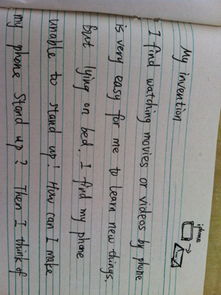 My invention
iphone
I find watching movies or videos by phone
is very easy for me to learn new things,
but lying on bed, I find my phone
unable to stand up! How can I make
my phone stand up? Then I think of